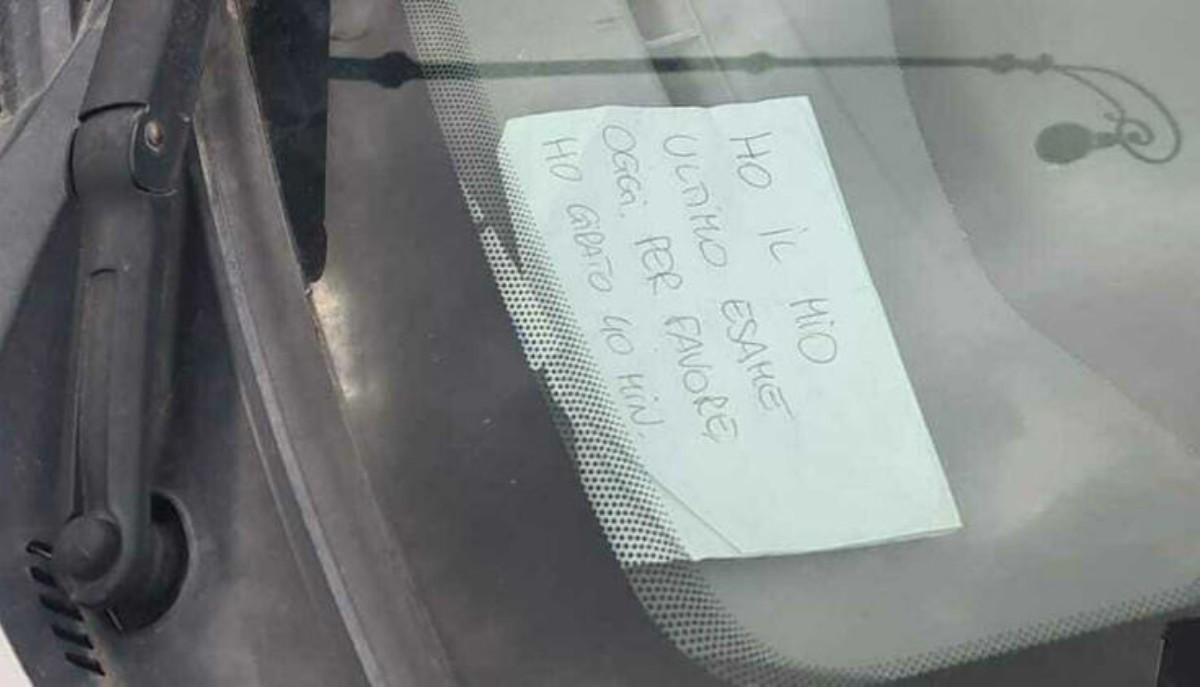 HO IL MIO
ULTIMO ESAME
OGGI. PER FAVORE,
HO GIRATO 40 MIN.